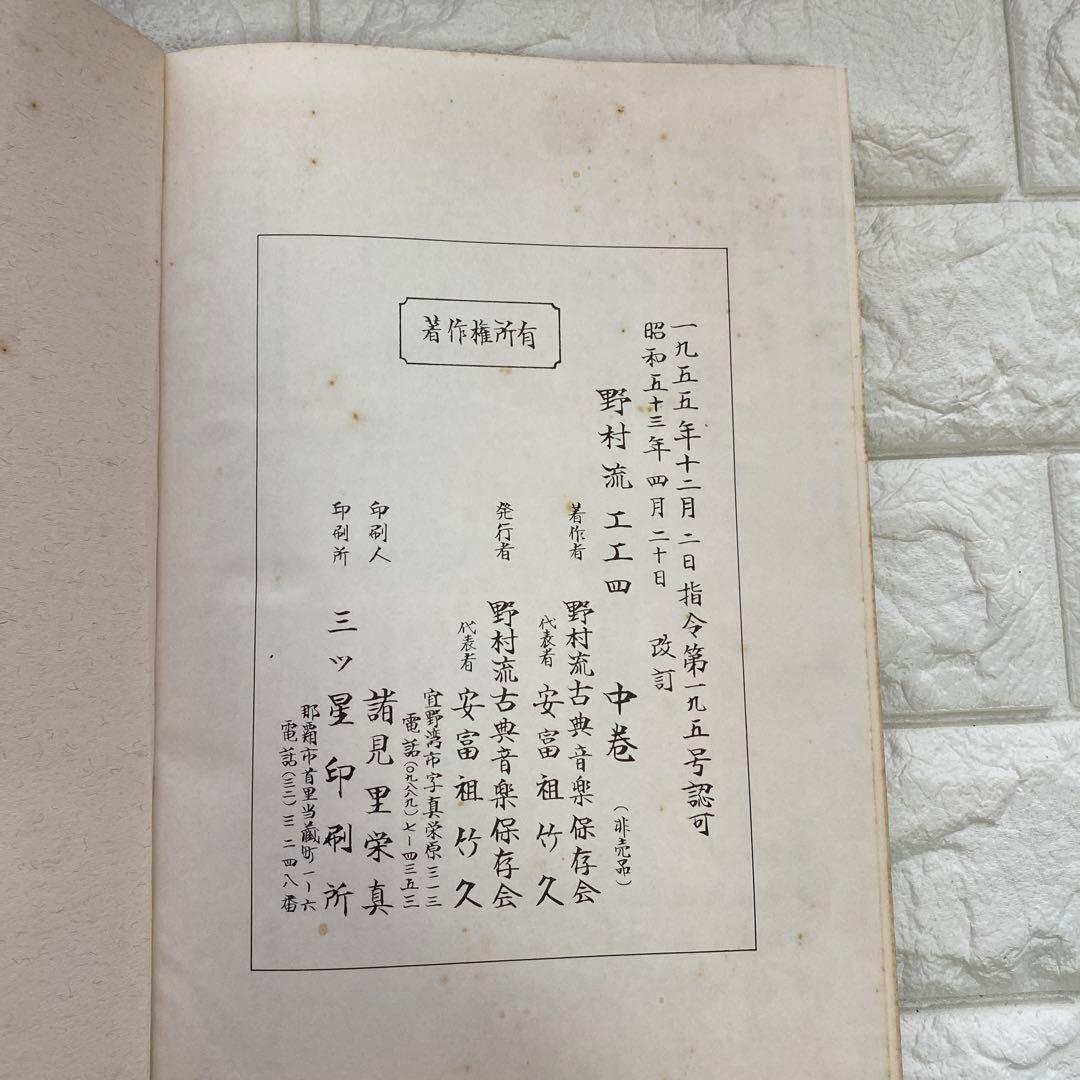 一九五五年十二月二日指令第一九五号認可
昭和五十三年四月二十日 改訂
野村流工工四 中巻 (非売品)
著作者 野村流古典音楽保存会
代表者 安富祖竹久
発行者 野村流古典音楽保存会
代表者 安富祖竹久
宜野湾市字真栄原三一三
電話(〇九八八九)七―四三五三
印刷人 諸見里栄真
印刷所 三ッ星印刷所
那覇市首里当蔵町一ノ六
電話(三二)三二四八番
著作権所有